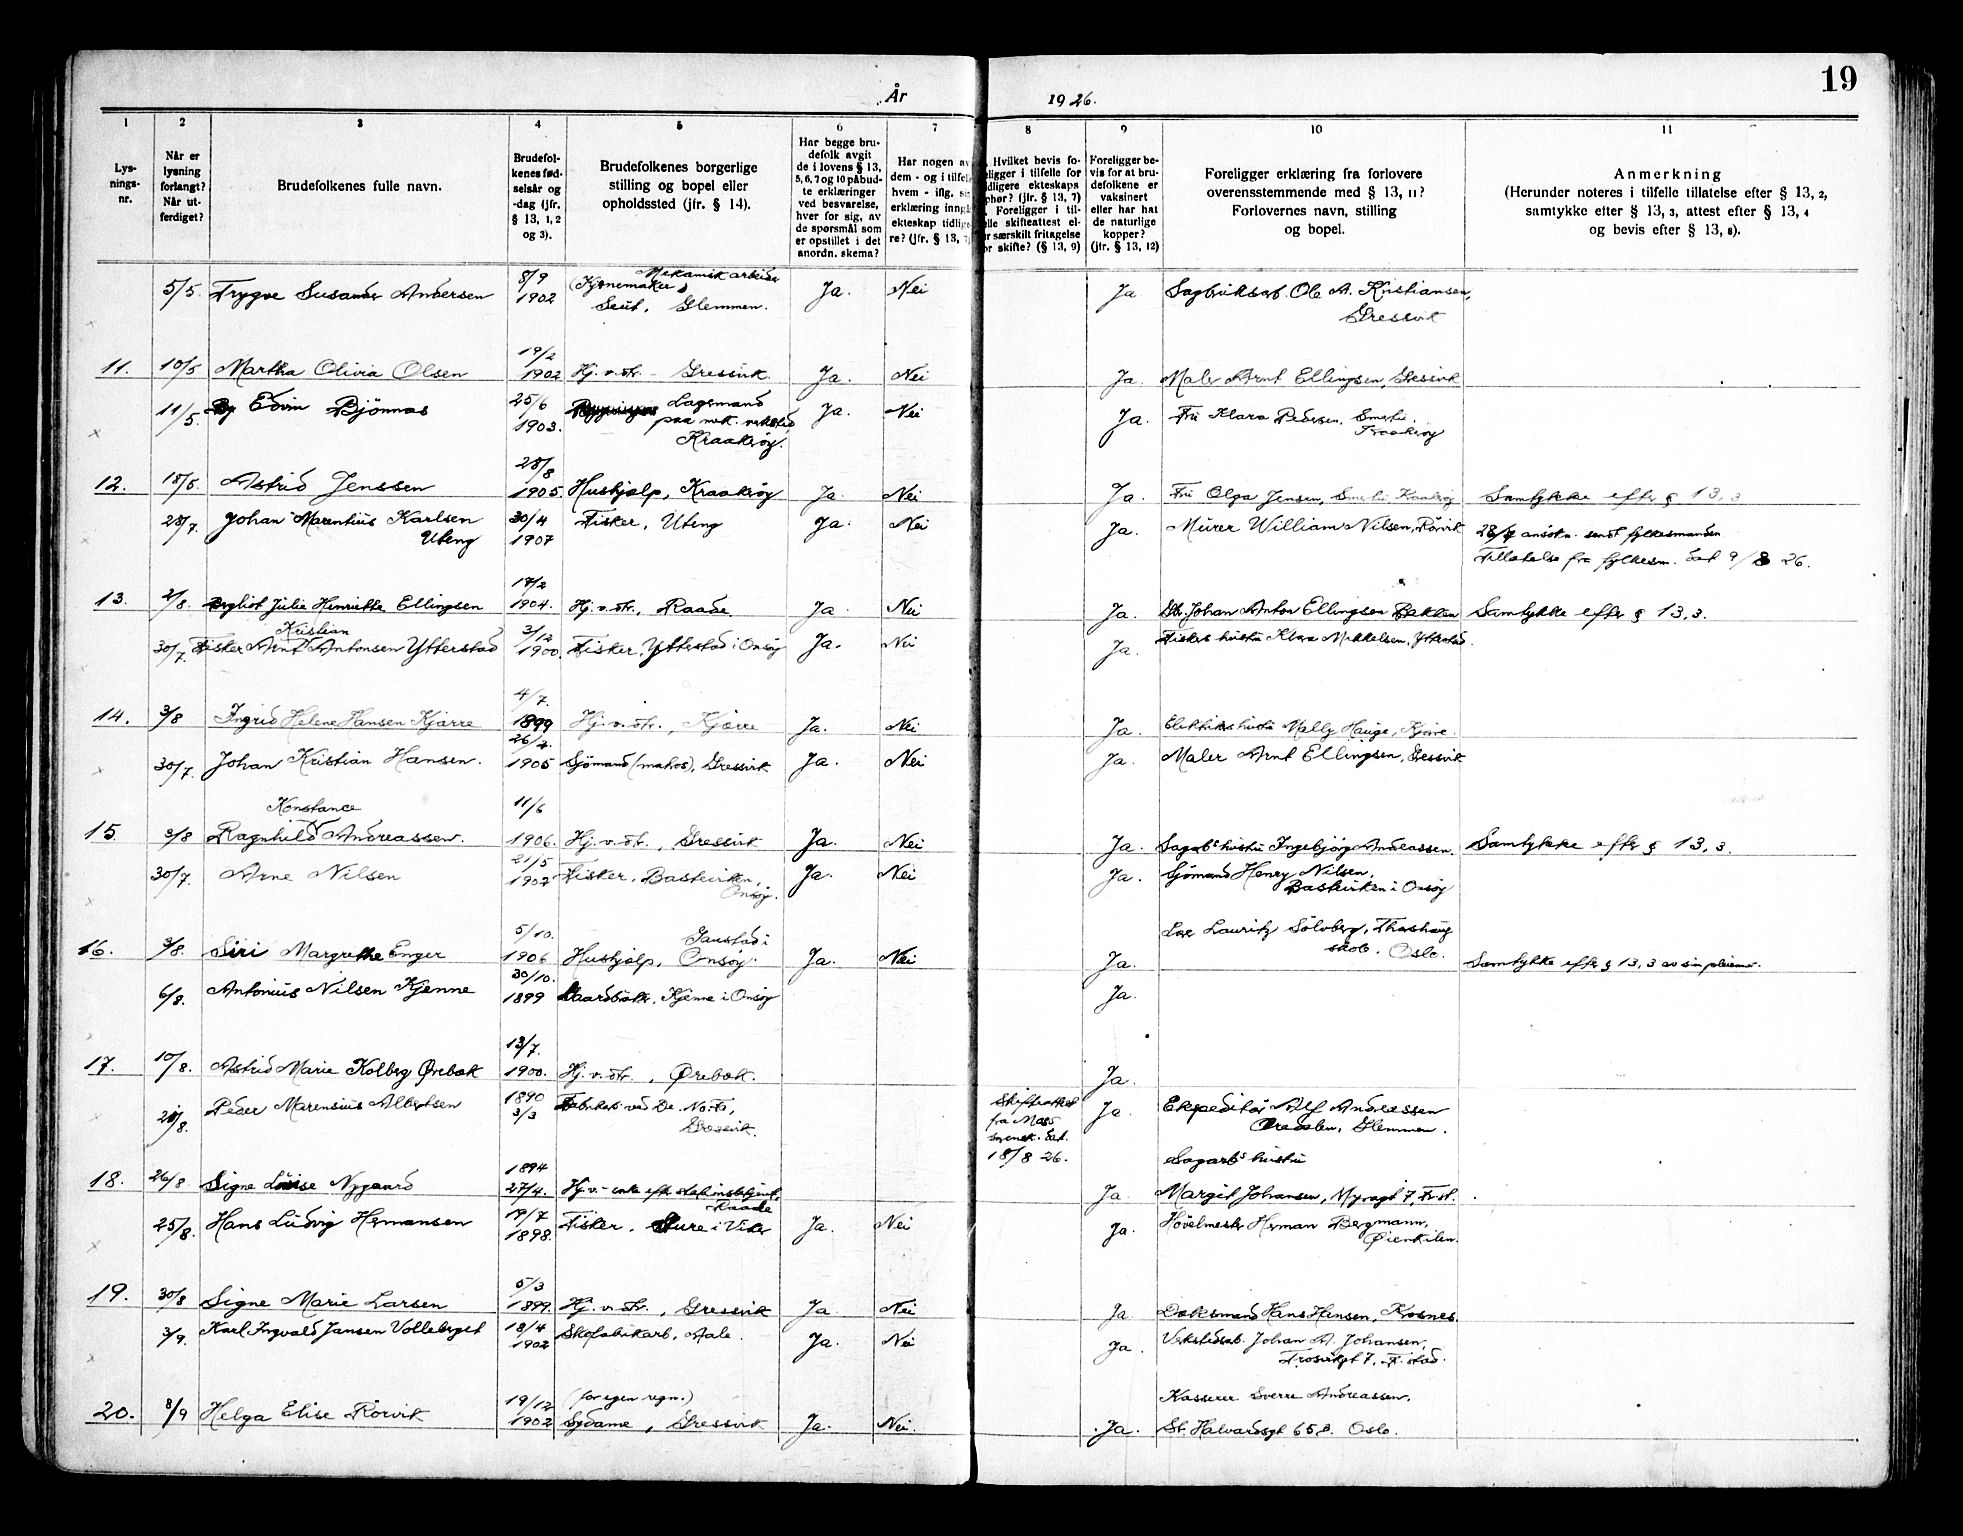 19
År 1926.
1 2 3 4 5 6 7 8 9 10 11
Lys-
nings-
nr.
Når er
lysning
forlangt?
Når ut-
ferdiget?
Brudefolkenes fulle navn.
Brudefol-
kenes fød-
selsår og
-dag (jfr.
§ 13, 1, 2
og 3).
Brudefolkenes borgerlige
stilling og bopel eller
opholdssted (jfr. § 14).
Har begge bru-
defolk avgit
de i lovens § 13,
5, 6, 7 og 10 påbud-
te erklæringer
ved besvarelse,
hver for sig, av
de spørsmål som
er opstillet i det
anordn. skema?
Har nogen av
dem - og i tilfelle
hvem - iflg.
erklæring inngå
ekteskap tidlige
re? (jfr. § 13, 7)
Hvilket bevis fo-
religger i tilfelle for
tidligere ekteskaps
ophør? (jfr. § 13, 7)
Foreligger i til-
felle skifteattest el-
ler særskilt fritagelse
for skifte? (§ 13, 9)
Foreligger be-
vis for at bru-
defolkene er
vaksinert
eller har hat
de naturlige
kopper?
(jfr. § 13, 12)
Foreligger erklæring fra forlovere
overensstemmende med § 13, 11?
Forlovernes navn, stilling
og bopel.
Anmerkning
(Herunder noteres i tilfelle tillatelse efter § 13, 2,
samtykke efter § 13, 3, attest efter § 13, 4
og bevis efter § 13, 8).
5/5. Trygve Susander Andersen 8/9 1902 (Kjernemaker) Mekanisk arbeider Seut, Glemmen. Ja. Nei Ja Sagbruksarb. Ole A. Kristiansen, Gressvik
11. 10/5 Martha Olivia Olsen 19/2 1902 Hj. v. str. - Gressvik. Ja. Nei Ja. Maler Arnt Ellingsen, Gressvik
11/5. Edvin Bjönnes 25/6 1903. Lagermand paa mek. verksted, Kraakröy. Ja. Nei Ja. Fru Klara Pedersen, Kraakröy
12. 18/5. Astrid Jenssen 28/8 1905. Hushjælp, Kraakröy Ja. Nei Ja. Fru Olga Jensen, Kraakröy Samtykke efter § 13, 3
28/7 Johan Marentius Karlsen Uteng 30/4 1907 Fisker, Uteng Ja. Nei Ja. Murer William Nilsen, Rörvik 28/7 ansökn. sendt fylkesmanden
Tillatelse fra fylkesm. dat 9/8 26.
13. 2/8. Bergliot Julie Henriette Ellingsen 17/2 1904. Hj. v. str., Raade. Ja Nei Ja. Johan Anton Ellingsen Bakken Samtykke efter § 13. 3.
30/7. Fisker Arnt Kristian Antonsen Ytterstad 3/12 1900. Fisker, Ytterstad i Onsöy Ja. Nei Ja. Fiskers hustru Klara Mikkelsen, Ytterstad.
14. 3/8 Ingrid Helene Hansen Kjærre 4/7. 1899 Hj. v. str., Kjærre Ja. Nei Ja. hustru Mally Hauge, Kjærre.
30/7. Johan Kristian Hansen. 26/2. 1905 Sjömand (matros), Gressvik Ja. Nei Ja. Maler Arnt Ellingsen, Gressvik
15. 3/8 Ragnhild Konstance Andreassen. 11/6 1906. Hj. v. str., Gressvik Ja. Nei Ja. Sagarb.s hustru Ingebjörg Andreassen. Samtykke efter § 13, 3.
30/7. Arne Nilsen 21/5 1902 Fisker, Onsöy. Ja. Nei Ja. Sjömand Henry Nilsen, i Onsöy
16. 3/8. Siri Margrethe Enger 5/10. 1906 Hushjælp, Gaustad i Onsöy. Ja. Nei Ja. Lauritz Sölvberg, Oslo. Samtykke efter § 13, 3 av sin
6/8. Antonius Nilsen Kjenne 30/10. 1899 Gaardbruker, Kjenne i Onsöy Ja.
17. 10/8. Astrid Marie Kolberg Ørebæk 13/7. 1900. Hj. v. str., Ørebæk. Ja.
Peder Marensius Albertsen 1890 3/3 Fabrikarb. ved De No. Fa., Gressvik. Skifteattest fra Moss sorensk. dat. 18/8 26. Ja. Ekspeditör Alf Andreassen Glemmen.
18. 26/8 Signe Louise Nygaard 1894 27/4. Hj. v. - enke efter stasjonsbetjent, Raade Ja. Sagarb.s hustru
Margit Johansen, Myragt 7, Fr.st.
25/8. Hans Ludvig Hermansen 19/7 1898. Fisker, Sture i Viker Ja. Nei Ja. Hövelmester Herman Bergmann, Øienkilen.
19. 30/8 Signe Marie Larsen 5/3 1899. Hj. v. str., Gressvik Ja. Nei Ja Doksmand Hans Hansen, Krosnes.
3/9. Karl Ingvald Jansen Volleberget 18/4 1902 Skofabrikarb., Aale. Ja. Nei Ja. Verkstedsarb. Johan A. Johansen, Trosvikgt 7, F.stad.
20. 8/9 Helga Elise Rörvik 19/12 1902 (for egen regn.) Sydame, Gressvik Ja. Nei. Ja. Kasserer Sverre Andreassen,
St. Halvardsgt 65 B. Oslo.